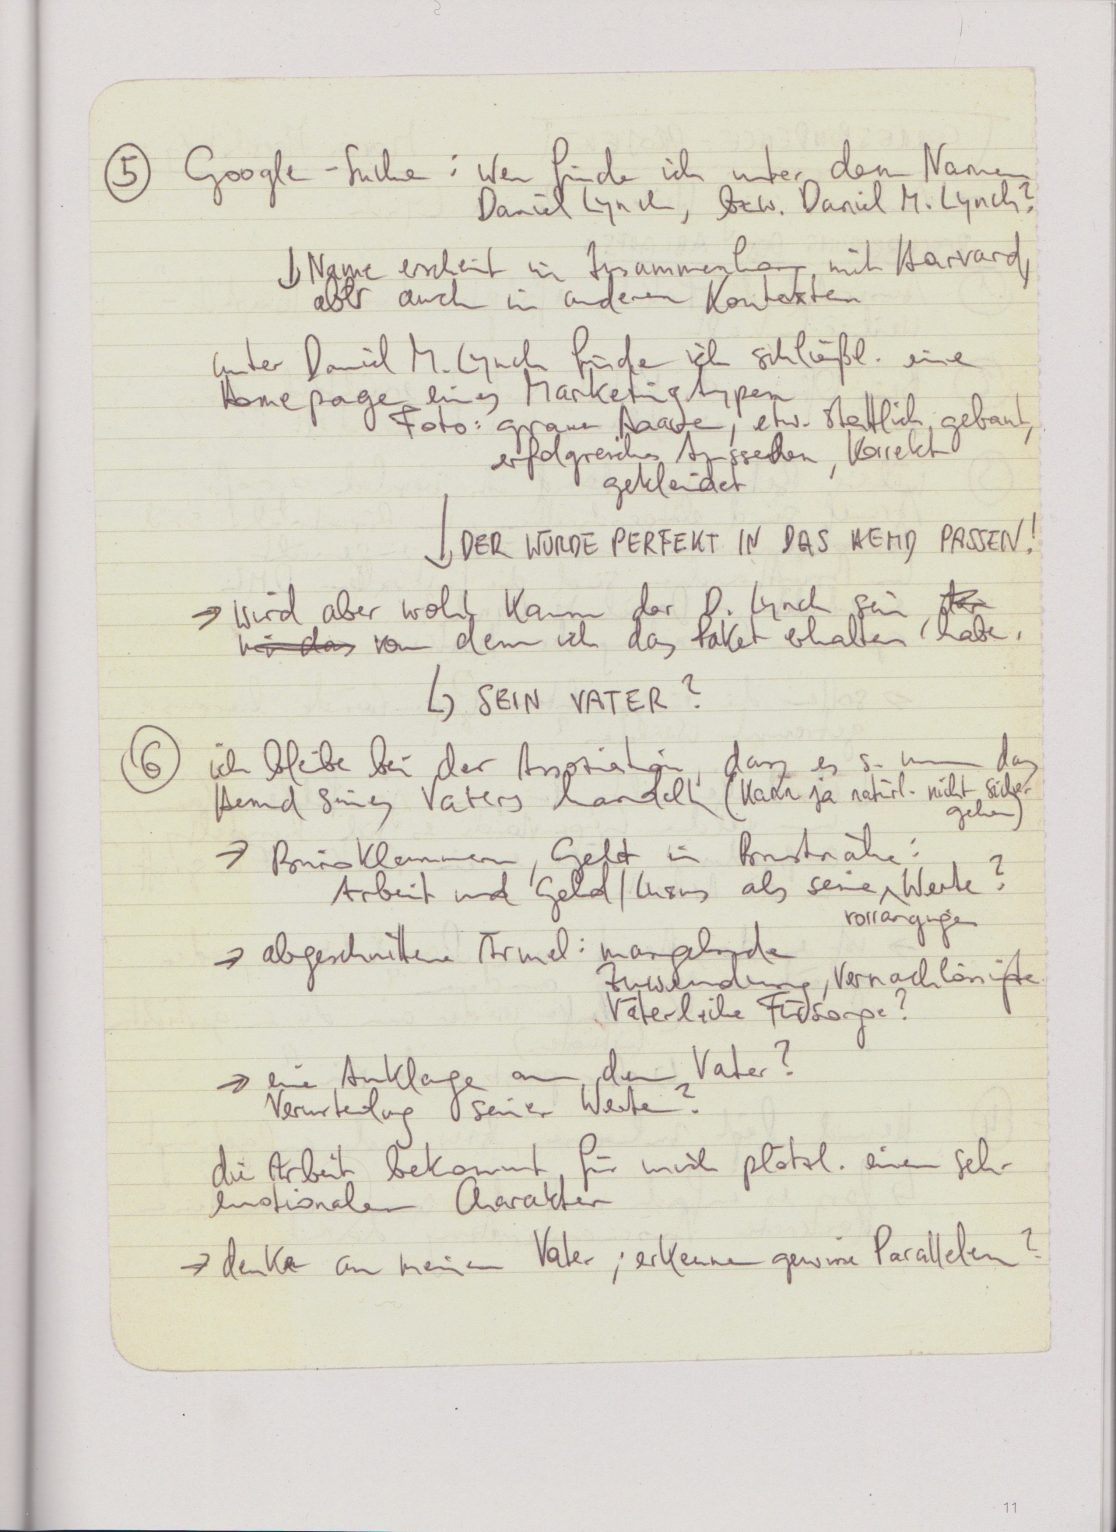 ⑤ Google-Suche: Wen finde ich unter dem Namen
Daniel Lynch, bzw. Daniel M. Lynch?
↳ Name erscheint in Zusammenhang mit Harvard,
aber auch in anderen Kontexten
unter Daniel M. Lynch finde ich schließl. eine
Homepage eines Marketingtypen
Foto: graue Haare, etw. stattlich gebaut,
erfolgreiches Aussehen, Korrekt
gekleidet
↓ DER WÜRDE PERFEKT IN DAS HEMD PASSEN!
→ wird aber wohl kaum der D. Lynch sein,
von dem ich das Paket erhalten habe.
↳ SEIN VATER?
⑥ ich bleibe bei der Assoziation, dass es s. um das
Hemd seines Vaters handelt (kann ja natürl. nicht sicher
gehen)
→ Büroklammern, Geld in Brustnähe:
Arbeit und Geld/Luxus als seine ^ Werte?
vorrangigen
→ abgeschnittene Ärmel: mangelnde
Zuwendung, vernachlässigte
Väterliche Fürsorge?
→ eine Anklage an den Vater?
Verurteilung seiner Werte?
die Arbeit bekommt für mich plötzl. einen sehr
emotionalen Charakter
→ denke an meinen Vater; erkenne gewisse Parallelen?
11